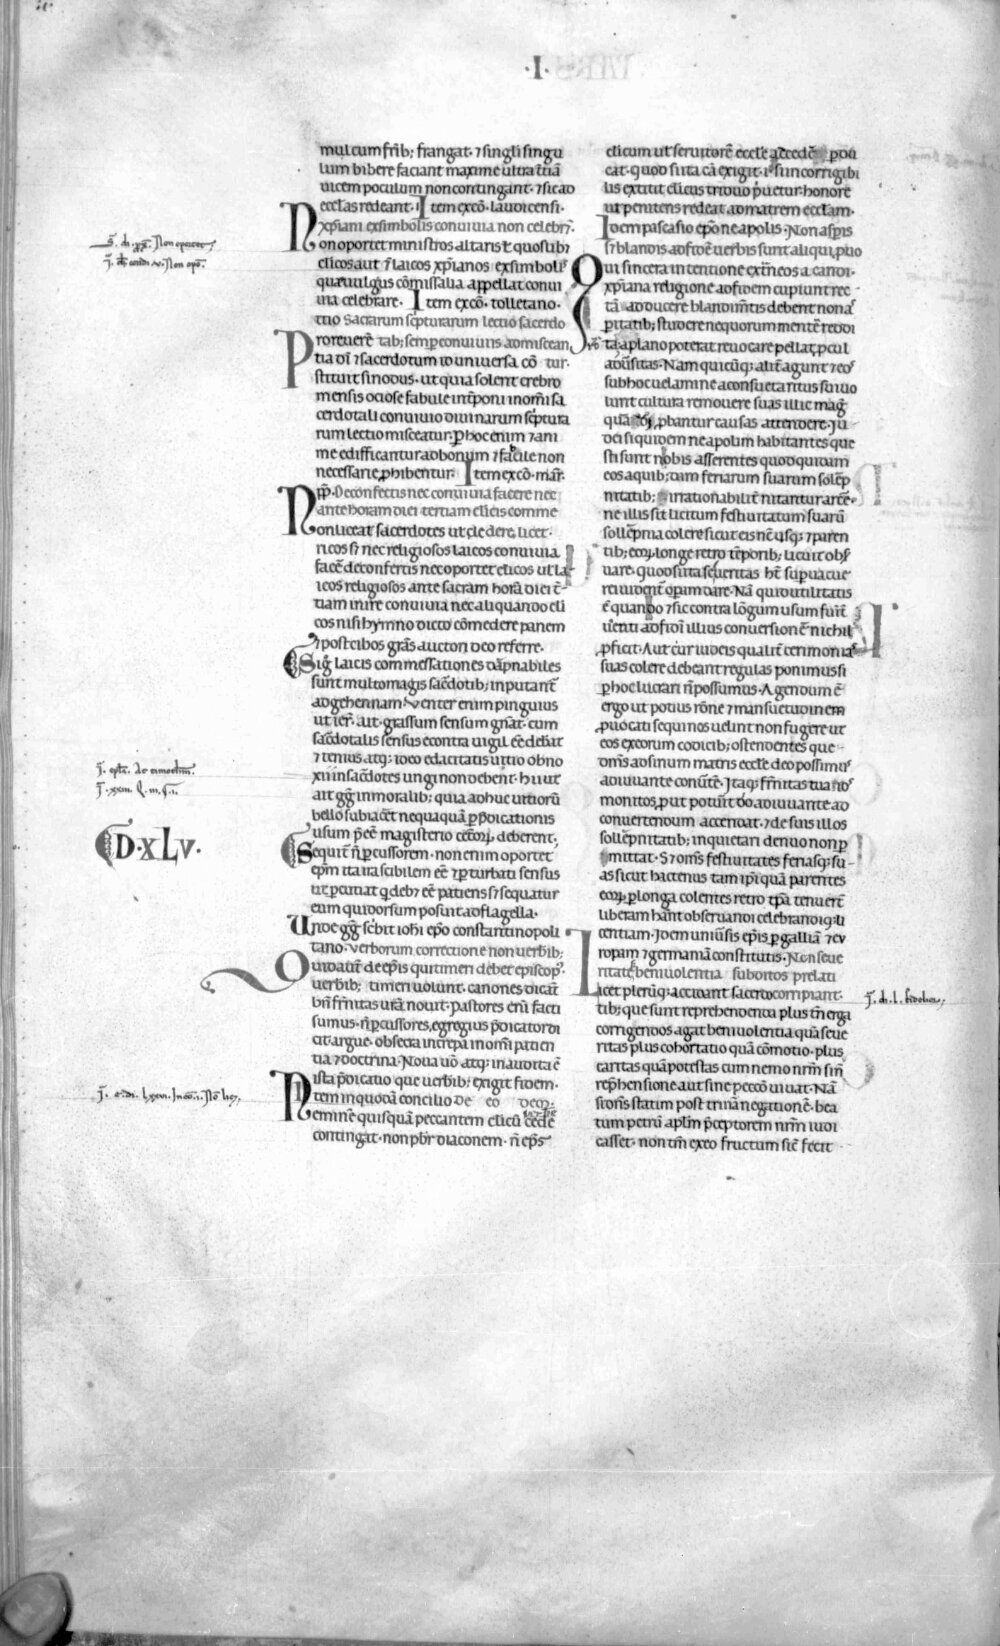 ·I·
mul cum frīb; frangat· ⁊ singuli singu
lum bibere faciant maxime ultra tr̄iā
uicem poculum non contingant· ⁊ sic ad
ecclas redeant· Item ex cō· laudicensi·
Xp̄iani ex simbolis conuiuia non celebr̄·
Non oportet ministros altaris ł quoslib;
clicos aut ⁊ laicos xp̄ianos ex simbolis
que uulgus cōmissalia appellat conui
uia celebrare· Item ex cō· tolletano·
ctio Sacrarum scripturarum lectio sacerdo
tab; semp conuiuiis admiscean
Pro reuerētia dī ⁊ sacerdotum id uniuersa cō tur·
stituit sinodus· ut quia solent crebro
mensis ociose fabule int̄poni in omī sa
cerdotali conuiuio diuinarum sc̄ptura
rum lectio misceatur· p hoc enim ⁊ ani
me edifficantur ad bonum ⁊ fabule non
necessarie phibentur· Item ex cō· mar̄·
pp̄· De confectis nec conuiuia facere nec
ante horam diei tertiam clicis comme
dere licet·
Non liceat sacerdotes ut cle
ricos s; nec religiosos laicos conuiuia
facē de confertis nec oportet clicos ut la
icos religiosos ante sacram horā diei t̄
tiam inire conuiuia nec aliquando cli
cos nisi hymno dicto cōmedere panem
⁊ post cibos grās auctori deo referre·
Sig̊ laicis commessationes dāpnabiles
sunt multo magis sac̄dotib; inputant̄
ad gehennam· Venter enim pinguius
ut ier̄· ait· grassum sensum gn̄at· cum
sac̄dotalis sensus econtra uigil ēe debeat
⁊ tenius atq; ideo edacitatis uitio obno
xii in sac̄dotes ungi non debent· hi ut
ait gḡ in moralib; quia adhuc uitiorū
bello subiacēt nequaquā p p̄dicationis
D·XLV·
usum p̄ēe magisterio cet̄or̄ deberent;
Sequit̄ n̄ pcussorem· non enim oportet
ep̄m ita irascibilem ēe ⁊ pturbati sensus
ut pcutiat q̄ deb; ēe patiens s; sequatur
eum qui dorsum posuit ad flagella·
Unde gḡ sc̄bit ioh̄i ep̄o constantinopoli
tano· Verborum correctione non uerbib;
uerbib; timeri uolunt· canones dicāt
bn̄ fr̄nitas ur̄a nouit· pastores eni facti
sumus· n̄ pcussores, egregius p̄dicator di
cit· argue· obsecra increpa in omī patien
tia ⁊ doctrina· Noua uō atq; inaudita ē
ista p̄dicatio que uerbib; exigit fidem·
Item in quodā concilio
Neminē quisquā peccantem clicū cede
contingat· non pb̄r diaconem· n̄ ep̄s
clicum ut seruitorē eccle ad cedē pdu
cat· quod si ita cā exigit· ł si incorrigibi
lis extitit clicus triduo p̄uetur honore
ut penitens redeat ad matrem ecclam·
Idem pascasio ep̄o neapolis· Non aspis
s; blandis ad fidē uerbis sunt aliqui, puo
Qui sincera intentione ext̄neos a candi·
xp̄iana religione ad fidem cupiunt rec·
tā adducere blandim̄tis debent non as
pitatib; studere ne quorum mentē reddi
ta a plano poterat reuocare pellat, pcul
adūsitas· Nam quicūq; alit̄ agunt ⁊ eos
sub hoc uelamine a consueta ritus sui uo
lunt cultura remouere suas illic mag̊
quā dei, pbantur causas attendere· Iu
dei siquidem neapolim habitantes que
sti sunt nobis asserentes quod quidam
eos a quib;dam feriarum suarum solēp
nitatib; irrationabilit̄ nitantur arcē·
ne illis sit licitum festiuitatum suarū
sollēpnia colere sicut eis nc̄ usq; ⁊ paren
tib; eor̄ longe retro tēporib; licuit obs̄
uare· quod si ita se ueritas ht̄ supuacue
rei uident̄ opam dare· Nā quid utilitatis
ē quando ⁊ si contra lōgum usum fuerit
uetiti ad fidei illius conuersionē nichil
pficit· Aut cur iudeis qualit̄ cerimonias
suas colere debeant regulas ponimus si
p hoc lucrari n̄ possumus· Agendum ē
ergo ut potius rōne ⁊ mansuetudinem
puocati sequi nos uelint non fugere ut
eos ex eorum codicib; ostendentes que
dm̄s ad sinum matris eccle deo possimus
adiuuante conūte· Itaq; fr̄nitas tua eos
monitos, put potuit dō adiuuante ad
conuertendum accendat· ⁊ de suis illos
sollēpnitatib; inquietari denuo non p
mittat· S; om̄s festiuitates feriasq; su
as sicut hactenus tam ipi quā parentes
eor̄ p longa colentes retro tp̄a tenuerē
liberam hn̄t obseruandi celebrandiq; li
centiam· Idem uniusis ep̄is p galliā ⁊ ev
ropam ⁊ germaniā constitutis· Non seue
ritate s; beniuolentia subditos prelati
corripiant·
Licet plerūq; accidant sacerdo
tib; que sunt reprehendenda plus tn̄ erga
corrigendos agat beniuolentia quā seue
ritas plus cohortatio quā cōmotio· plus
caritas quā potestas cum nemo nr̄m sin̄
rep̄hensione aut sine peccō uiuat· Nā
si dn̄s statim post trinā negationē· bea
tum petrū aplm p̄ceptorem nr̄m iudi
casset· non tm̄ ex eo fructum sic̄ fecit